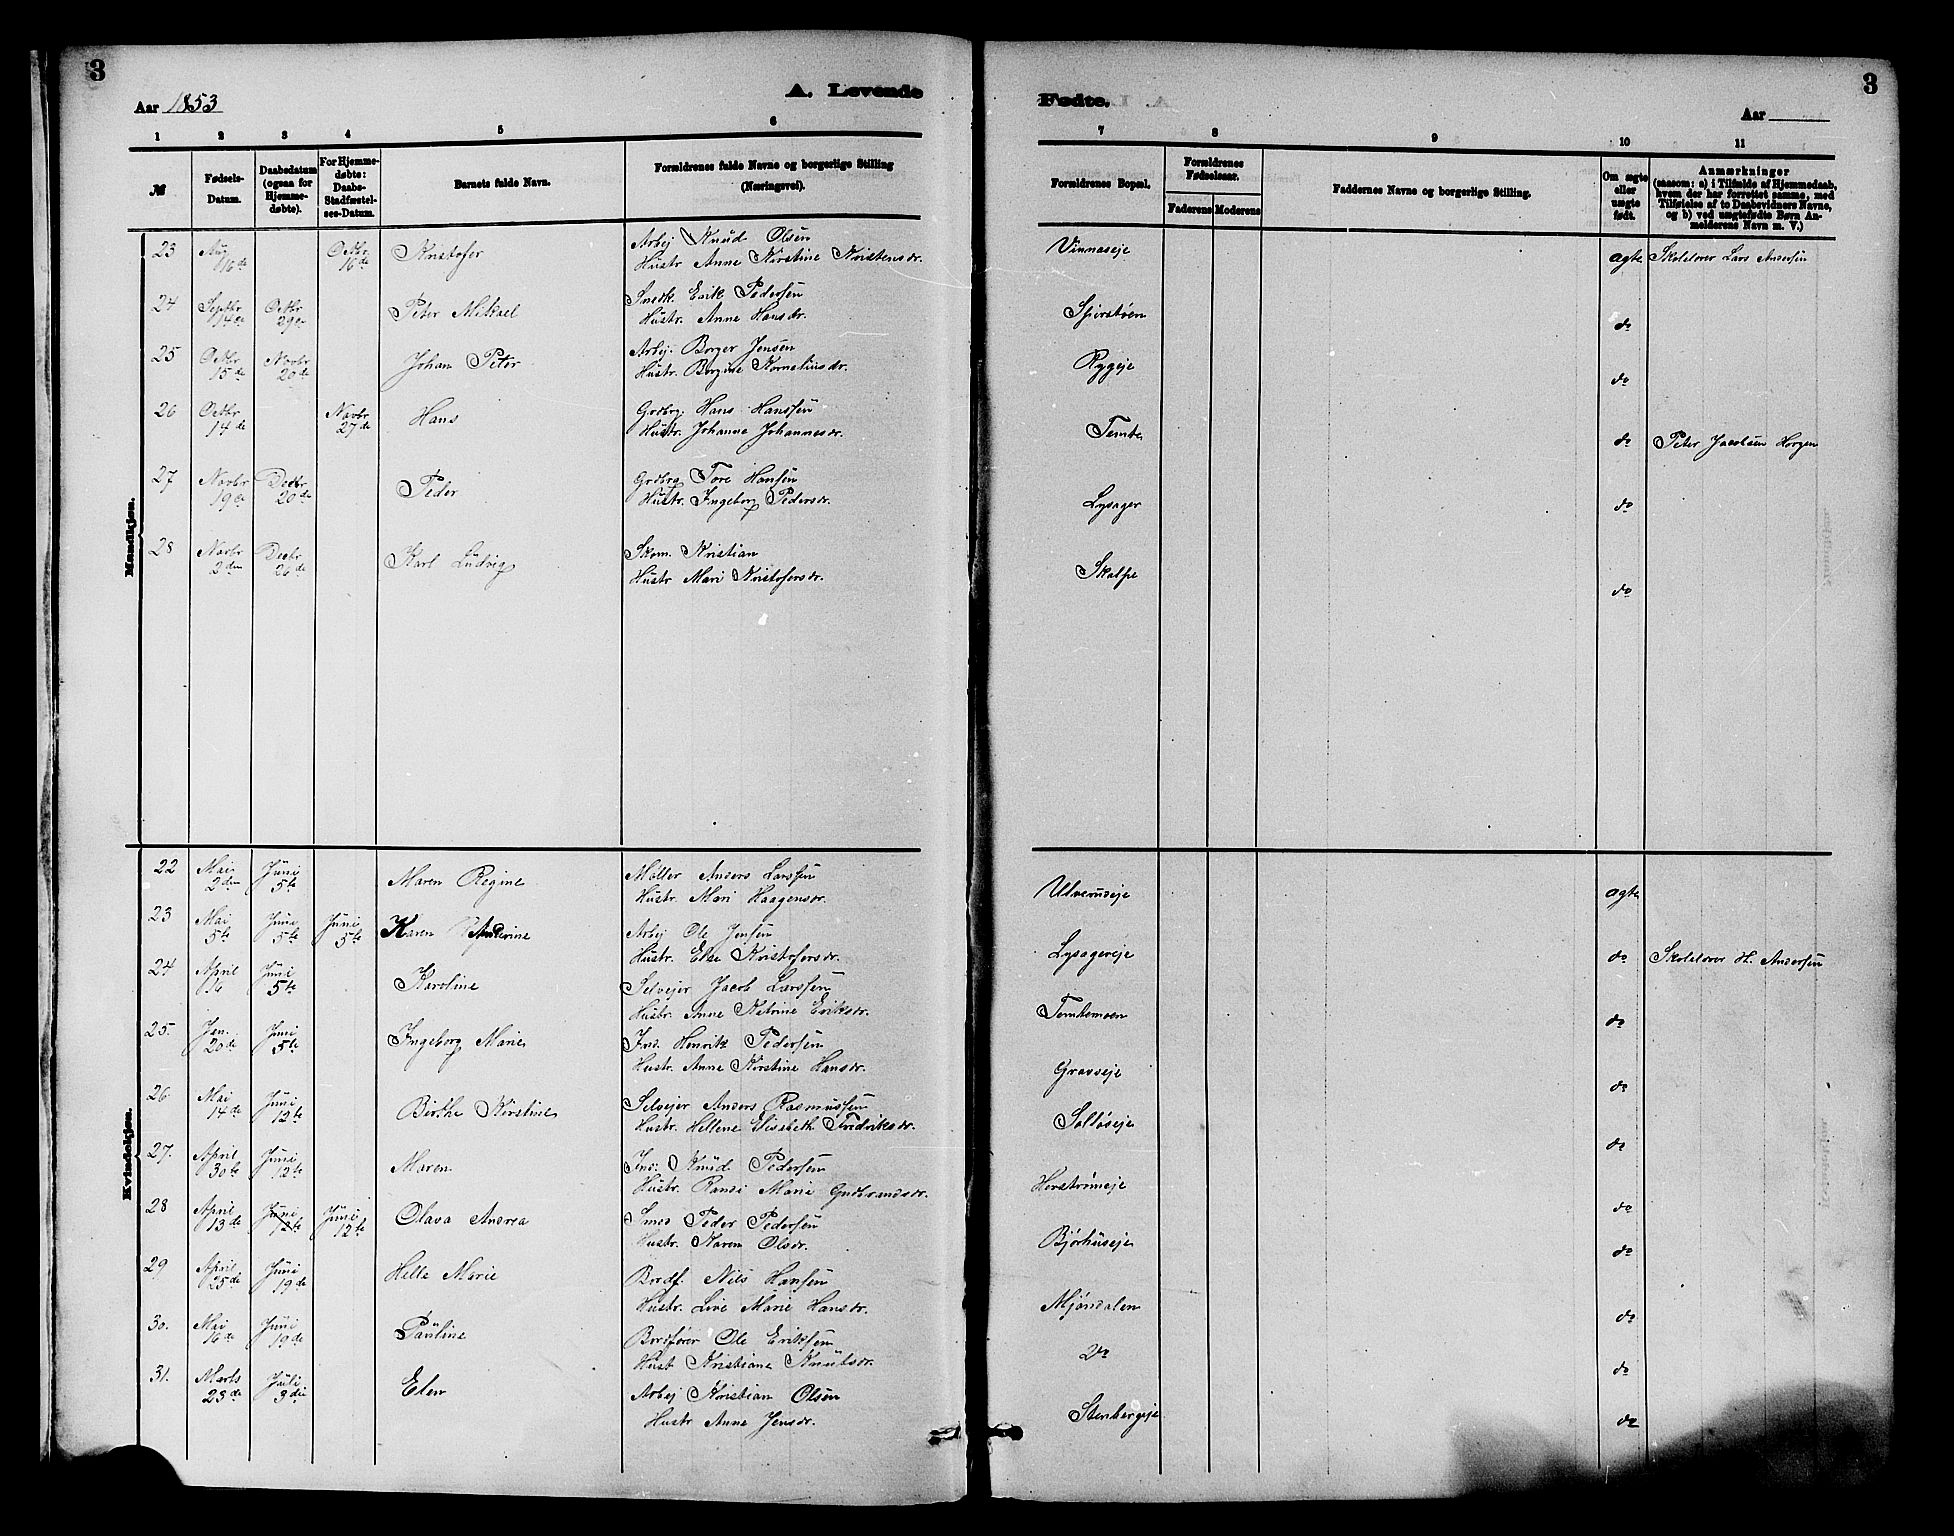 3
Aar 1853
A. Levende
1 2 3 4 5 6
№
Fødsels-Datum.
Daabsdatum (ogsaa for Hjemme-døbte).
For Hjemme-døbte: Daabs-Stadfæstel-ses-Datum.
Barnets fulde Navn.
Forældrenes fulde Navne og borgerlige Stilling (Næringsvei).
Mandkjøn.
23 Aug 16de Octbr 16de Kristofer Arbej Knud Olsen
Hustr Anne Kirstine Kristensdr.
24 Septbr 14de Octbr 29de Peter Mikael Snedk. Erik Pedersen
Hustr. Anne Hansdr.
25 Octbr 15de Novbr 20de Johan Peter Arbej. Borger Jensen
Hustr. Bergine Korneliusdr.
26 Octbr 14de Novbr 27de Hans Grdbrg. Hans Hanssen
Hustr. Johanne Johannesdr.
27 Novbr 19de Decbr 20de Peder Grdbrg Tore Hansen
Hustr. Ingeborg Pedersdr.
28 Novbr 2den Decbr 26de Karl Ludvig Skom. Kristian
Hustr Mari Kristofersdr.
Kvindekjøn.
22 Mai 2den Juni 5te Maren Regine Møller Anders Larssen
Hustr. Mari Haagensdr.
23 Mai 5te Juni 5te Juni 5te Karen Andrine Arbej Ole Jensen
Hustr. Else Kristofersdr.
24 April 16 Juni 5te Karoline Selvejer Jacob Larssen
Hustr. Anne Katrine Eriksdr.
25. Jan. 20de Juni 5te Ingeborg Marie Ind. Henrik Pedersen
Hustr. Anne Kirstine Hansdr.
26 Mai 14de Juni 12te Birthe Kirstine Selvejer Anders Rasmussen
Hustr. Hellene Elisabeth Fredriksdr.
27. April 30te Juni 12te Maren Ind: Knud Pedersen
Hustr. Randi Marie Gudbrandsdr.
28 April 13de Juni 12te Juni 12te Olava Andrea Smed Peder Pedersen
Hustr. Karen Olsdr.
29 April 25de Juni 19de Helle Marie Bordf. Nils Hansen
Hustr. Live Marie Hansdr.
30. Mai 16de Juni 19de Pauline Bordfører Ole Eriksen
Hust Kristiane Knutsdr.
31. Marts 23de Juli 3die Elen Arbej Kristian Olsen
Hustr Anne Jensdr.
3
Fødte.
Aar
7 8 9 10 11
Forældrenes Bopæl.
Forældrenes Fødselsaar.
Faderens Moderens
Faddernes Navne og borgerlige Stilling.
Om ægte eller uægte født.
Anmærkninger
(saasom: a) i Tilfælde af Hjemmedaab, hvem der har forrettet samme, med Tilføielse af to Daabsvidners Navne, og b) ved uægtefødte Børn An-melderens Navn m. V.)
Vinnaseje ægte Skolelærer Lars Andersen
Spirstøen do
Rygeje do
Temte do Peter Jacobsen Horgen
Lysager do
Skalpe do
Ulverudeje ægte
Lysagereje do Skolelærer H. Andersen
Temtemoen do
Gravseje do
Solløseje do
Herstrømeje do
Bjørhuseje do
Mjøndalen do
Do do
Stenbergeje do